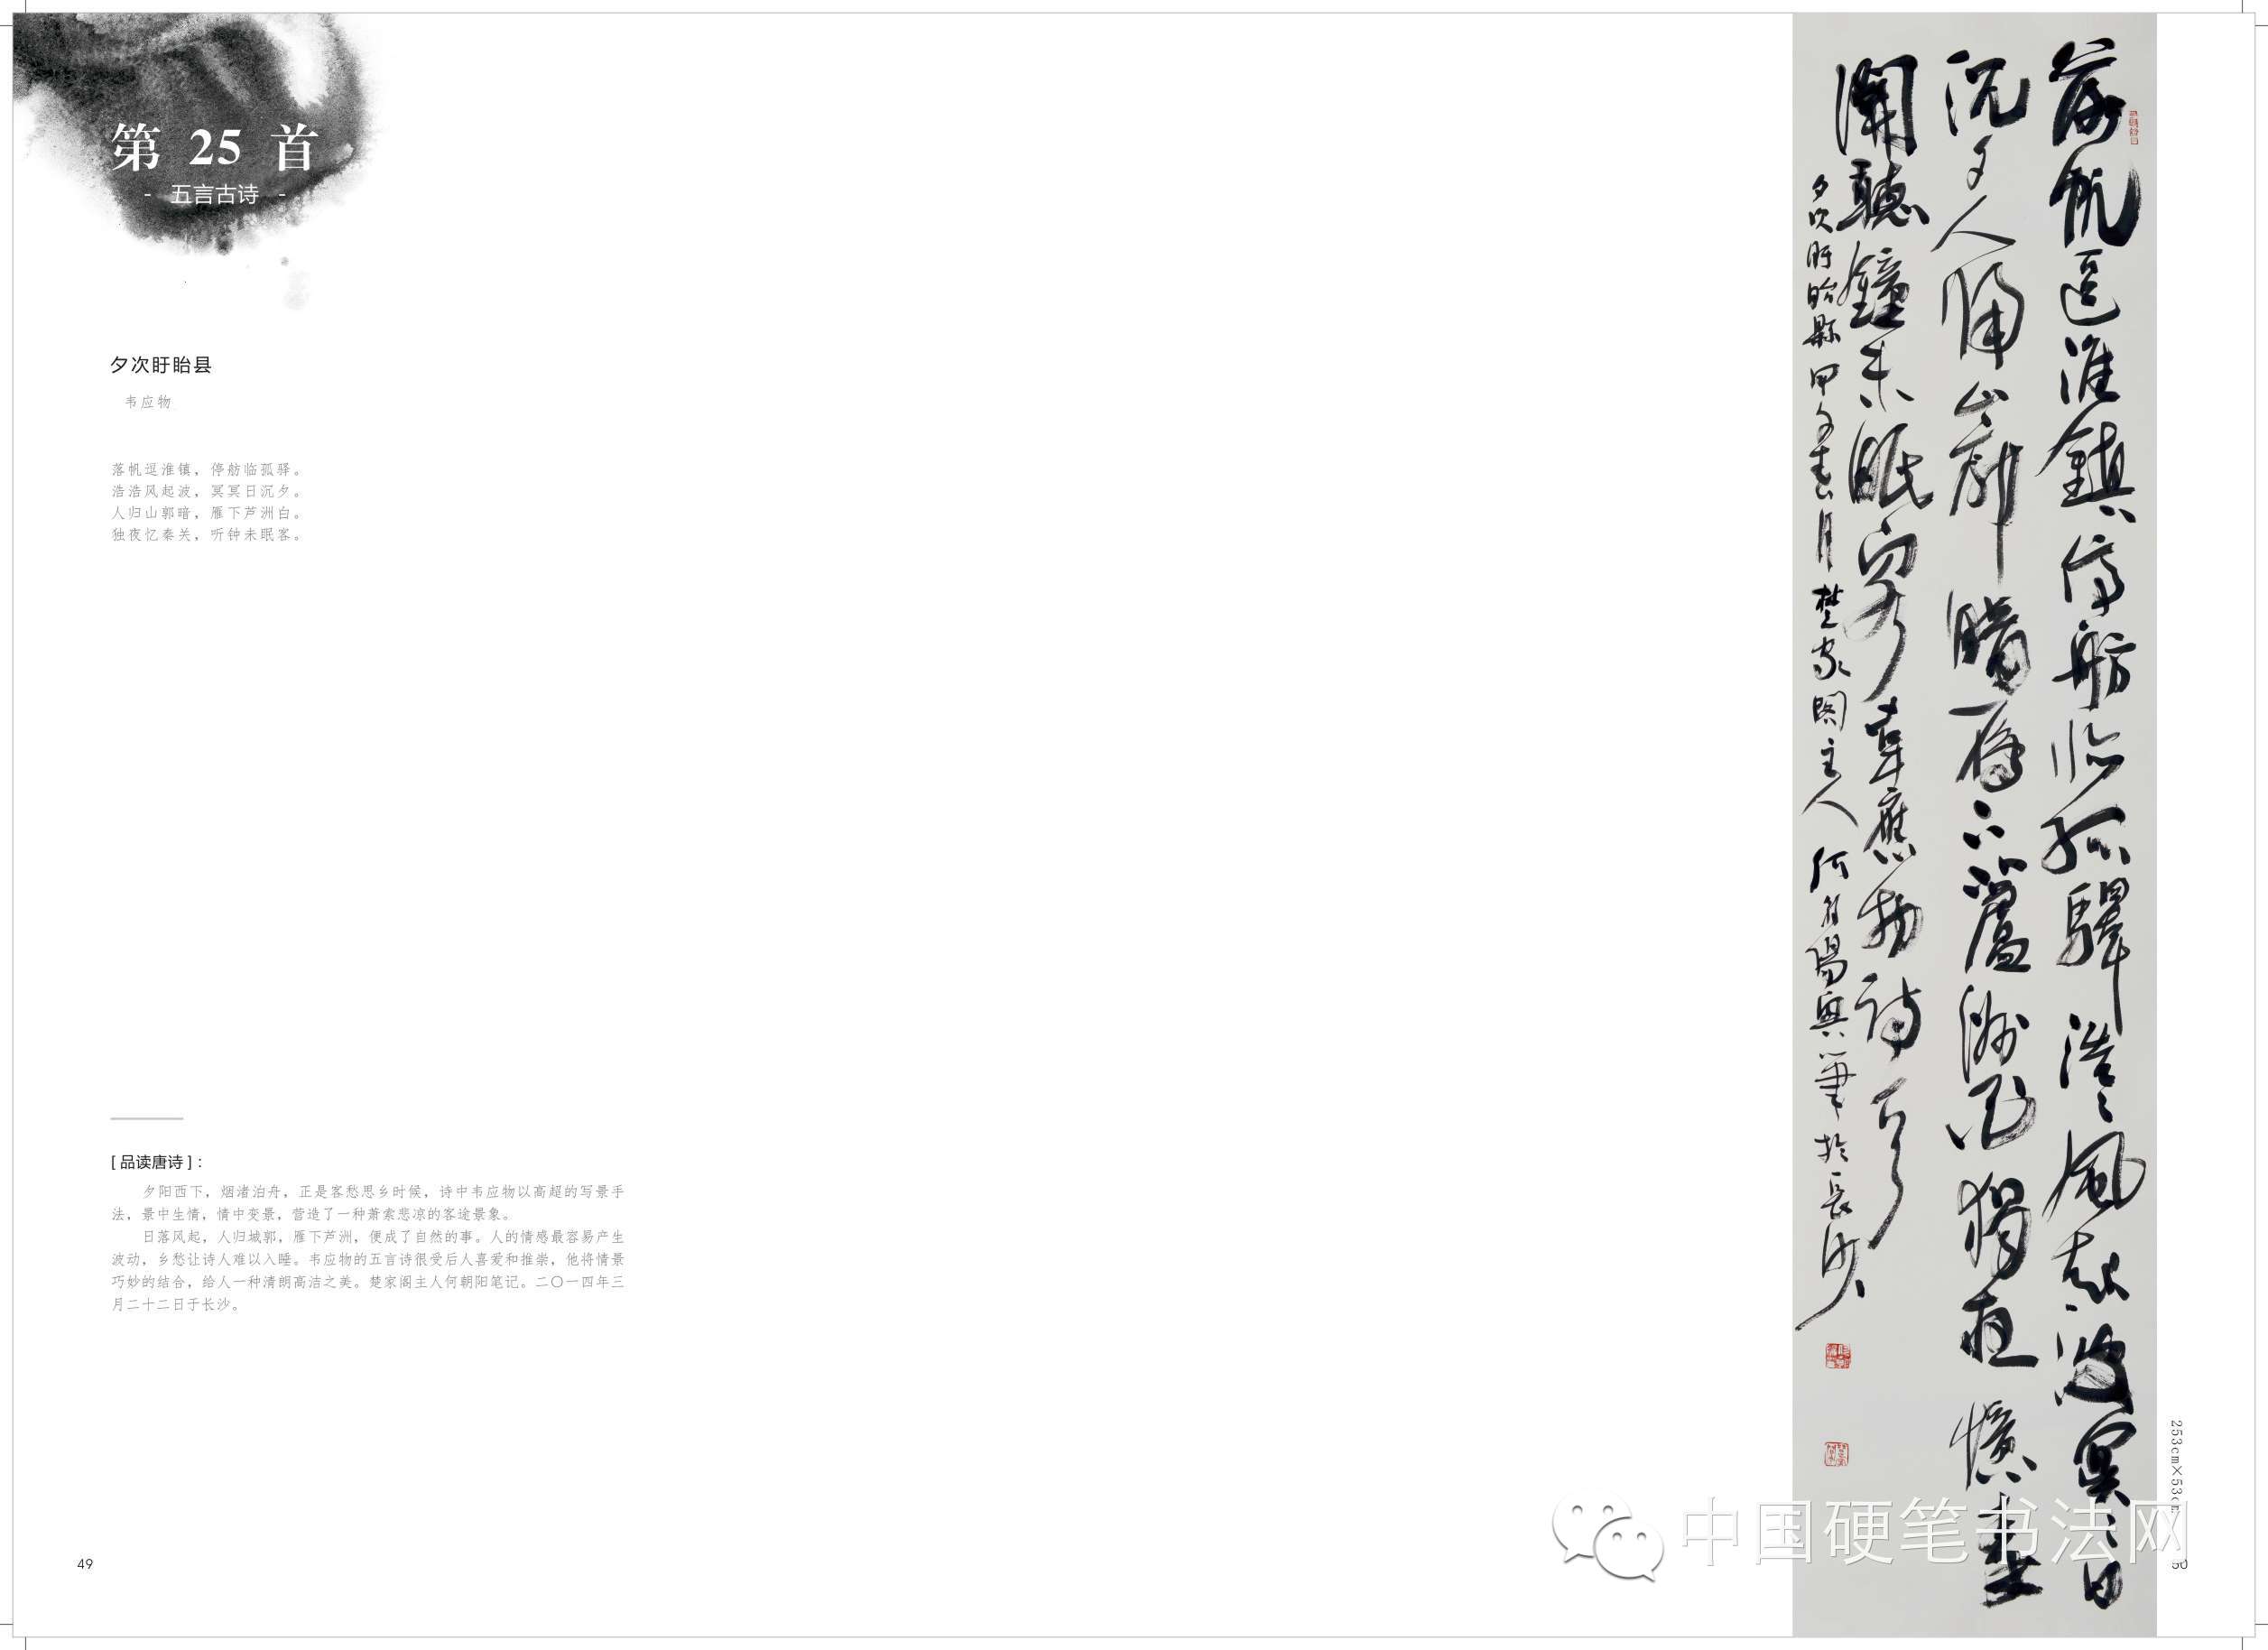 第 25 首
- 五言古诗 -
夕次盱眙县
韦应物
落帆逗淮镇，停舫临孤驿。
浩浩风起波，冥冥日沉夕。
人归山郭暗，雁下芦洲白。
独夜忆秦关，听钟未眠客。
[ 品读唐诗 ]：
夕阳西下，烟渚泊舟，正是客愁思乡时候，诗中韦应物以高超的写景手
法，景中生情，情中变景，营造了一种萧索悲凉的客途景象。
日落风起，人归城郭，雁下芦洲，便成了自然的事。人的情感最容易产生
波动，乡愁让诗人难以入睡。韦应物的五言诗很受后人喜爱和推崇，他将情景
巧妙的结合，给人一种清朗高洁之美。楚家阁主人何朝阳笔记。二〇一四年三
月二十二日于长沙。
49
落帆逗淮鎮停舫临孤驛浩浩風起波冥冥日
沉夕人歸山郭暗雁下蘆洲白獨夜憶秦
關聽鐘未眠客韋應物詩一首
夕次盱眙縣甲午春月楚家閣主人何朝陽興筆於長沙
253cm×53cm
50
中国硬笔书法网